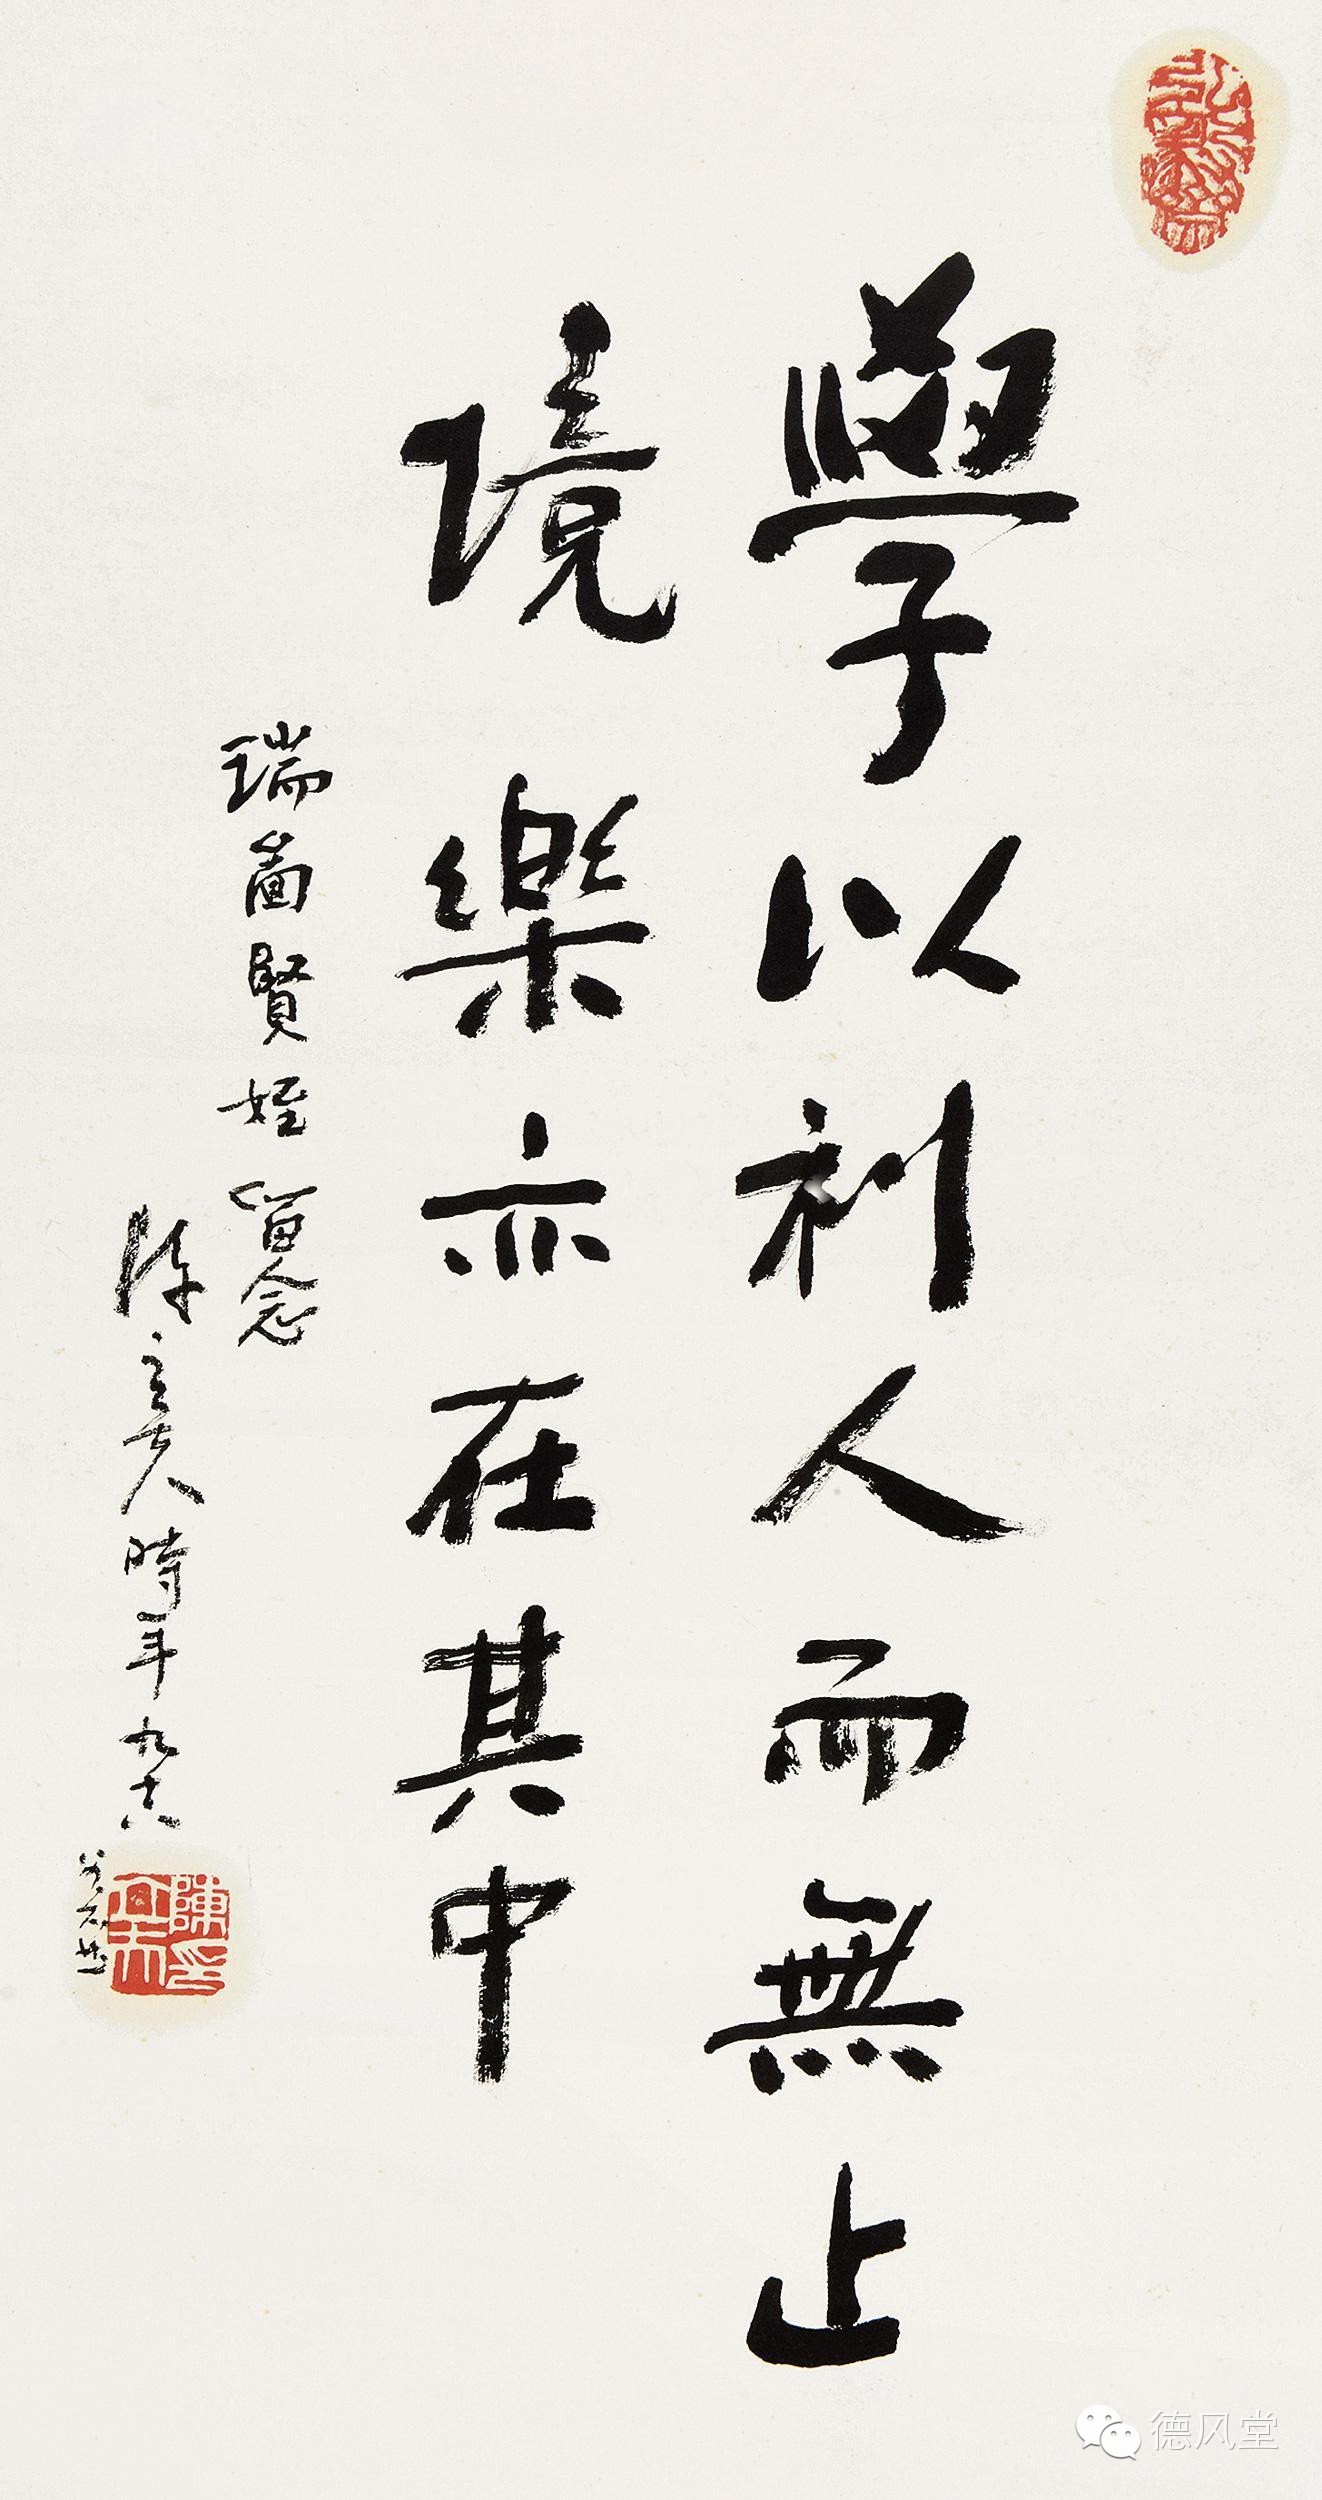 學以利人而無止
境樂亦在其中
瑞賢姪留念
陳立夫時年九十六
陳立夫印
德风堂